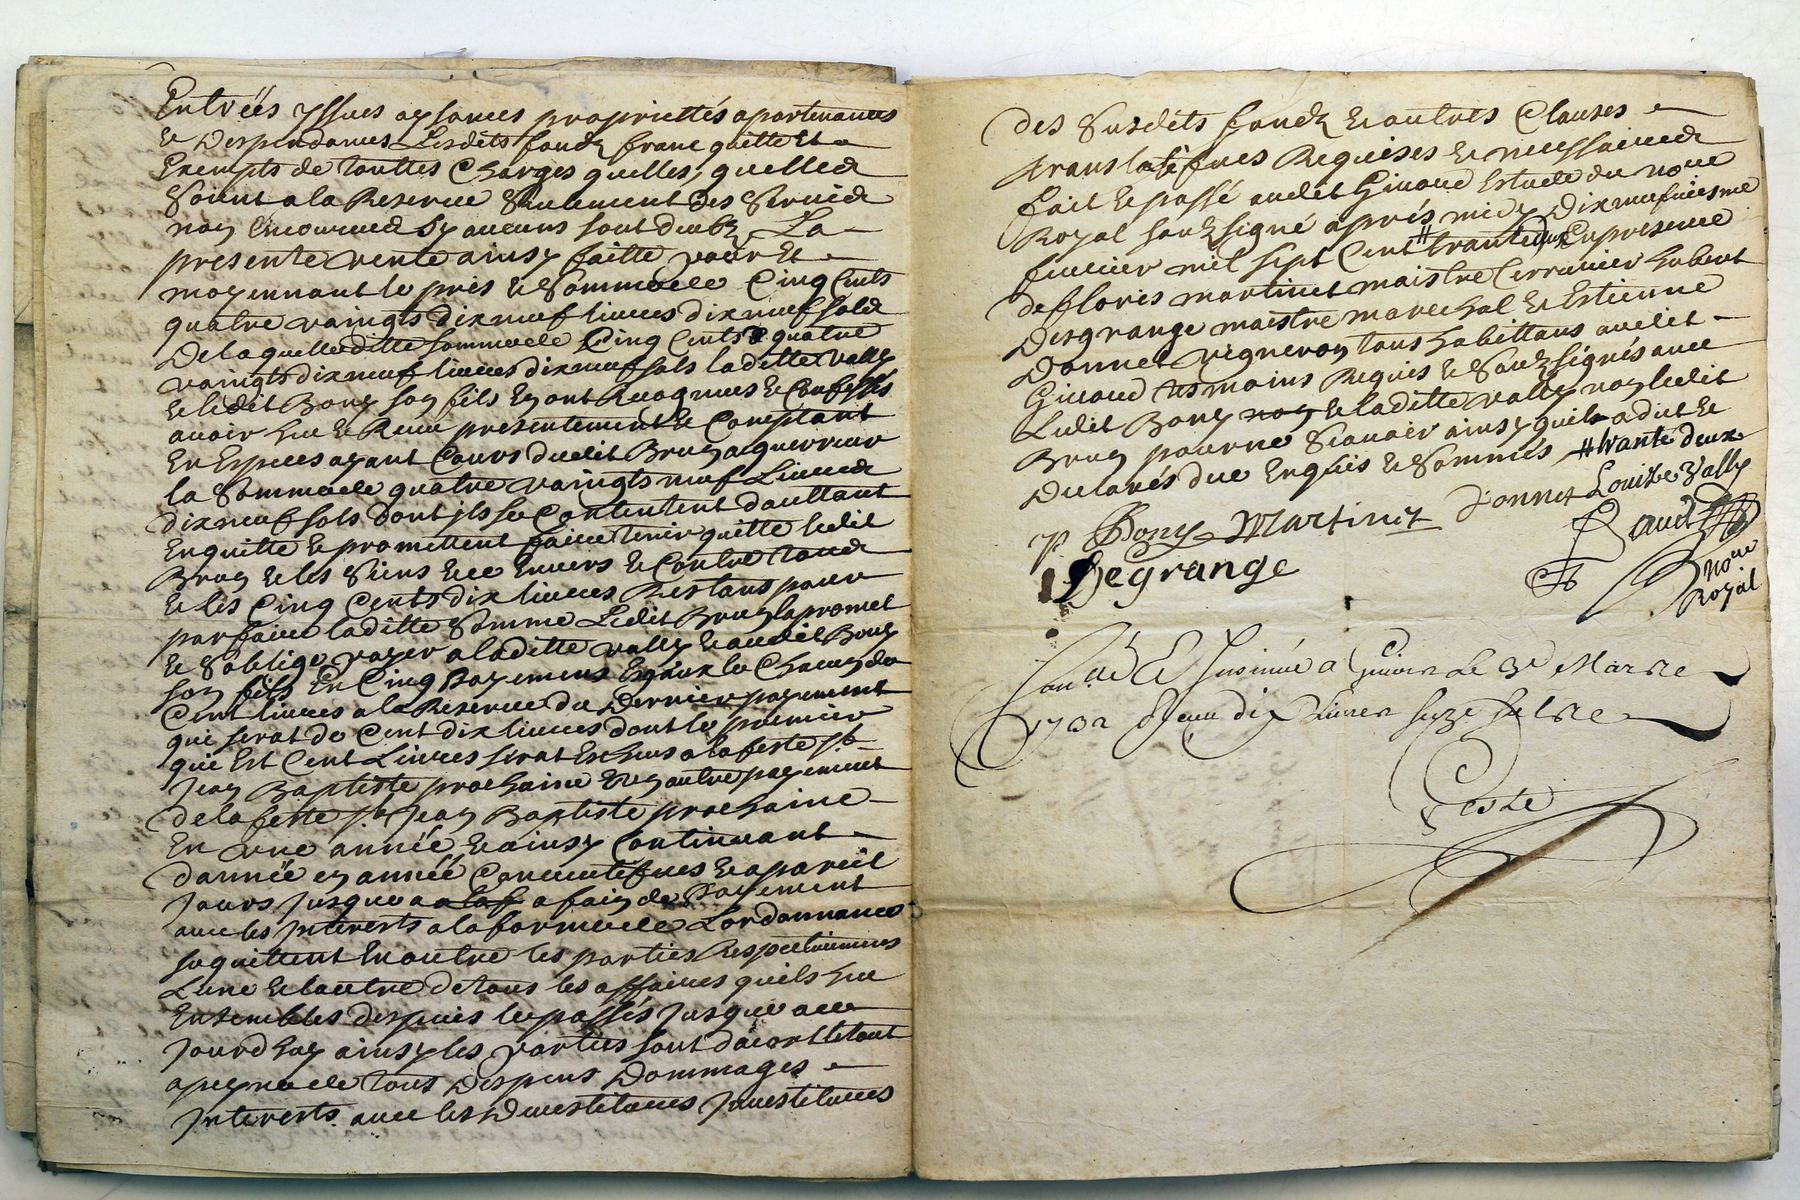 Entréés yssues aysances propriettés apartenances
& Despendances Lesdits fondz franc quitte Et
Exempts de touttes Charges quelles quelles
Soient a la Reserve Seulement des Servis
non Encourues sy aucuns sont deubz La
presente vente ainsy faitte pour Et
moyennant le prix & Somme de Cinq Cents
quatre vaingts dix neuf livres dix neuf sols
De laquelle ditte somme de Cinq Cents quatre
vaingts dix neuf livres dix neuf sols laditte vally
& ledit Bony son fils En ont Recognus & Confessés
avoir heu & Receu presentement & Comptant
En Especes ayant Cours dudit Brun acquerreur
la Somme de quatre vaingts neuf Livres
dix neuf sols dont ils se Contentent d'aultant
En quitte & promettent faire tenir quitte ledit
Brun & les Siens & ce Envers & Contre tous
& les Cinq Cents dix livres Restans pour
parfaire laditte Somme Ledit Brun la promet
& S'oblige payer a laditte vally & audit Bony
son fils En Cinq Payemens Egaux de Chacun de
Cent livres a la Reserve du Dernier payement
qui serat de Cent dix livres dont le premier
qui Est Cent Livres serat Escheus a la feste St
Jean Baptiste prochaine & un autre payement
de la feste St Jean Baptiste prochaine
En une année & ainsy Continuant
d'année en année Consecutifves & a pareil
Jours Jusques a a fain de Payement
avec les Interests a la forme de L'ordonnance
se quittent En outre les parties Respectivemens
L'une & l'autre de tous les affaires quils heu
Ensembles despuis le passés Jusque a ce
Jourd'huy ainsy les parties sont d'acort le tout
a peyne de tous Despens Dommages
Interests avec les Devestitures Jnvestitures
des Susdits fondz & autres Clauses
translatifves Requises & necessaires
fait & passé audit Givord Estude du nore
Royal soubzsigné aprés midy Dix neufviesme
fevrier mil sept Cent # trante deux En presence
de floris martinet maistre Cerrurier hubert
Desgrange maistre marechal & Estienne
Donnet vigneron tous habittans audit
Givord tesmoins Requis & Soubz signés avec
Ledit Bony non & laditte vally non ledit
Brun pour ne Scavoir ainsy quils a dit &
Declarés due Enquis & Sommés # trante deux
P Bony Martinet Donnet Louize Vally
Degrange
nore
Royal
& Insinué a Givord Le 3e Mars
1732 Receu dix Livres seze sols